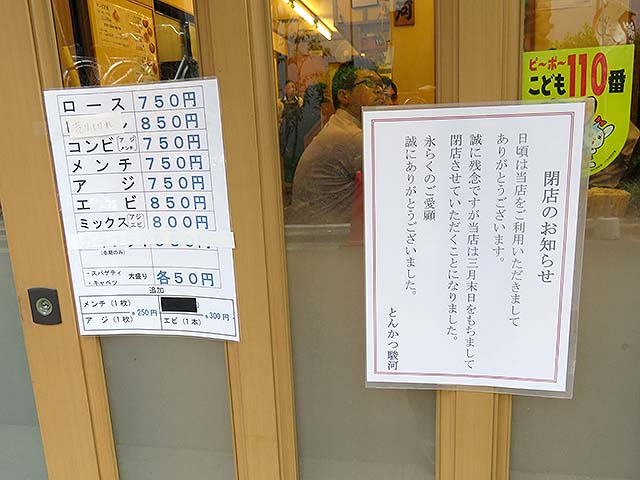 ロース 750円
売り切れ 850円
コンビ アジ メンチ 750円
メンチ 750円
アジ 750円
エビ 850円
ミックス アジ エビ 800円
(冬期のみ)
・スパゲティ
・キャベツ
大盛り 各50円
追加
メンチ (1枚)
アジ (1枚)
各250円
エビ (1本)
各300円
閉店のお知らせ
日頃は当店をご利用いただきまして
ありがとうございます。
誠に残念ですが当店は三月末日をもちまして
閉店させていただくことになりました。
永らくのご愛顧
誠にありがとうございました。
とんかつ駿河
ピ〜ポ〜
こども110番
河